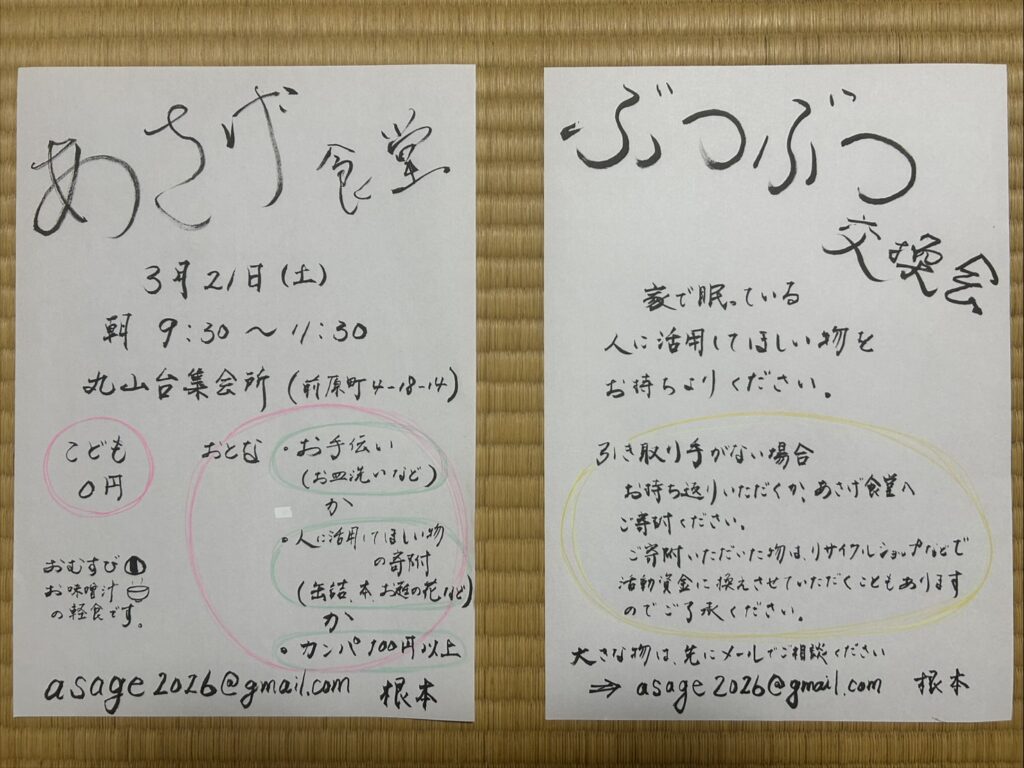 あさげ食堂
3月21日(土)
朝 9:30〜11:30
丸山台集会所(前原町4-18-14)
こども
0円
おとな
・お手伝い
(お皿洗いなど)
か
・人に活用してほしい物
の寄附
(缶詰、本、お庭の花など)
か
・カンパ100円以上
おむすび
お味噌汁
の軽食です。
asage2026@gmail.com 根本
ぶつぶつ
交換会
家で眠っている
人に活用してほしい物を
お持ちよりください。
引き取り手がない場合
お持ち返りいただくか、あさげ食堂へ
ご寄附ください。
ご寄附いただいた物は、リサイクルショップなどで
活動資金に換えさせていただくこともあります
のでご了承ください。
大きな物は、先にメールでご相談ください
⇒ asage2026@gmail.com 根本